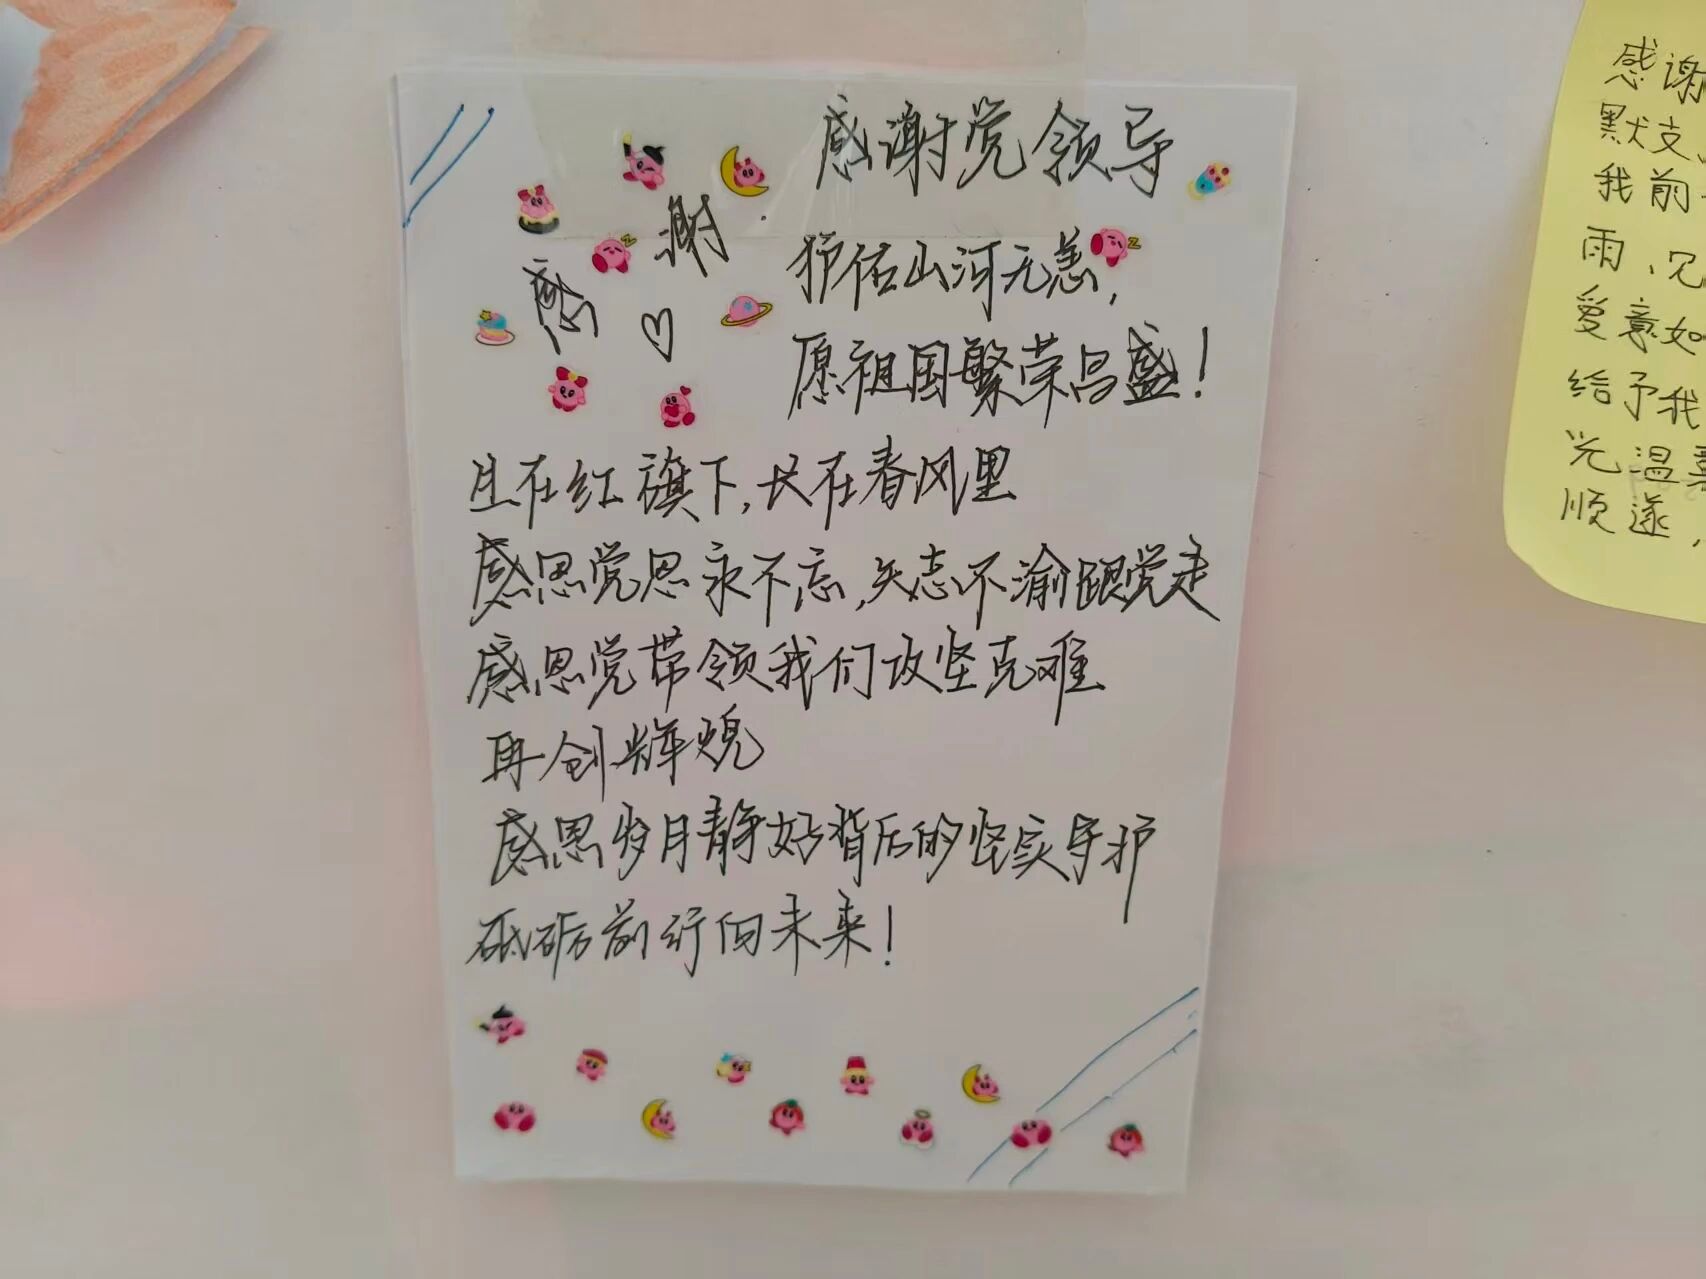 感谢党领导
感谢
护佑山河无恙，
愿祖国繁荣昌盛！
生在红旗下，长在春风里
感恩党恩永不忘，矢志不渝跟党走
感恩党带领我们攻坚克难
再创辉煌
感恩岁月静好背后的坚实守护
砥砺前行向未来！
感谢
默支
我前
雨、
爱意如
给予我
光温
顺遂，